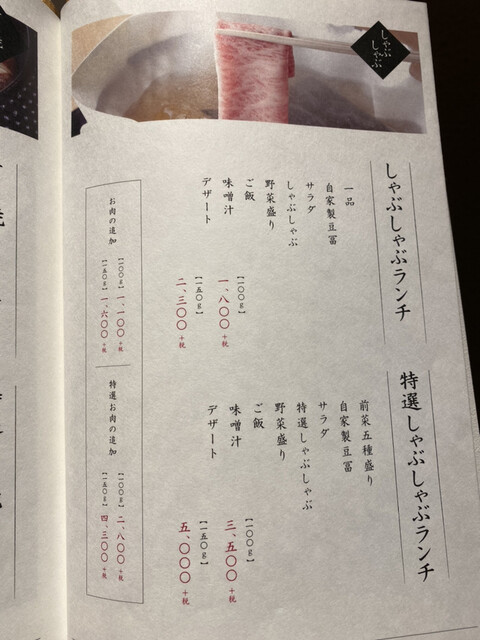 しゃぶ
しゃぶ
しゃぶしゃぶランチ
一品
自家製豆冨
サラダ
しゃぶしゃぶ
野菜盛り
ご飯
味噌汁
デザート
【一〇〇g】
一、八〇〇+税
【一五〇g】
二、三〇〇+税
お肉の追加
【一〇〇g】一、一〇〇+税
【一五〇g】一、六〇〇+税
特選しゃぶしゃぶランチ
前菜五種盛り
自家製豆冨
サラダ
特選しゃぶしゃぶ
野菜盛り
ご飯
味噌汁
デザート
【一〇〇g】
三、五〇〇+税
【一五〇g】
五、〇〇〇+税
特選お肉の追加
【一〇〇g】二、八〇〇+税
【一五〇g】四、三〇〇+税